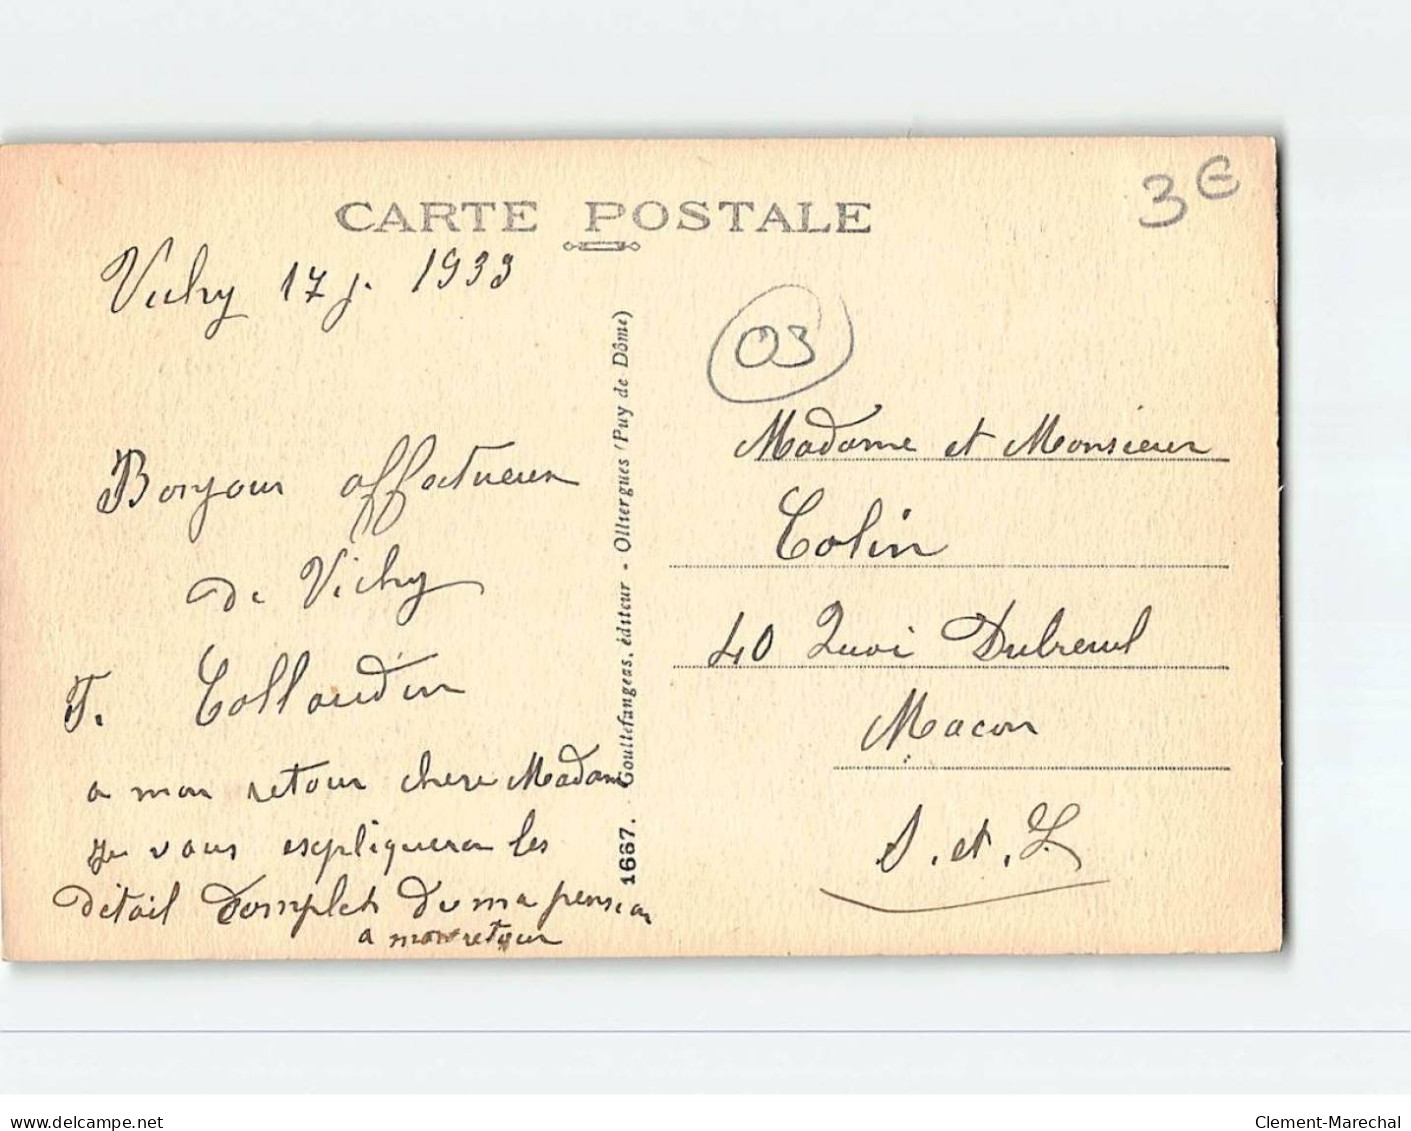 CARTE POSTALE
3 €
Vichy 17 j. 1933
03
Bonjour affectueux
de Vichy
T. Collaudin
a mon retour chere Madame
je vous expliquera les
détail complets de ma pension
a mon retour
1667. Gouttefangeas, éditeur - Olliergues (Puy de Dôme)
Madame et Monsieur
Colin
40 Quai Dubreuil
Macon
S. et. L
www.delcampe.net
Clement-Marechal